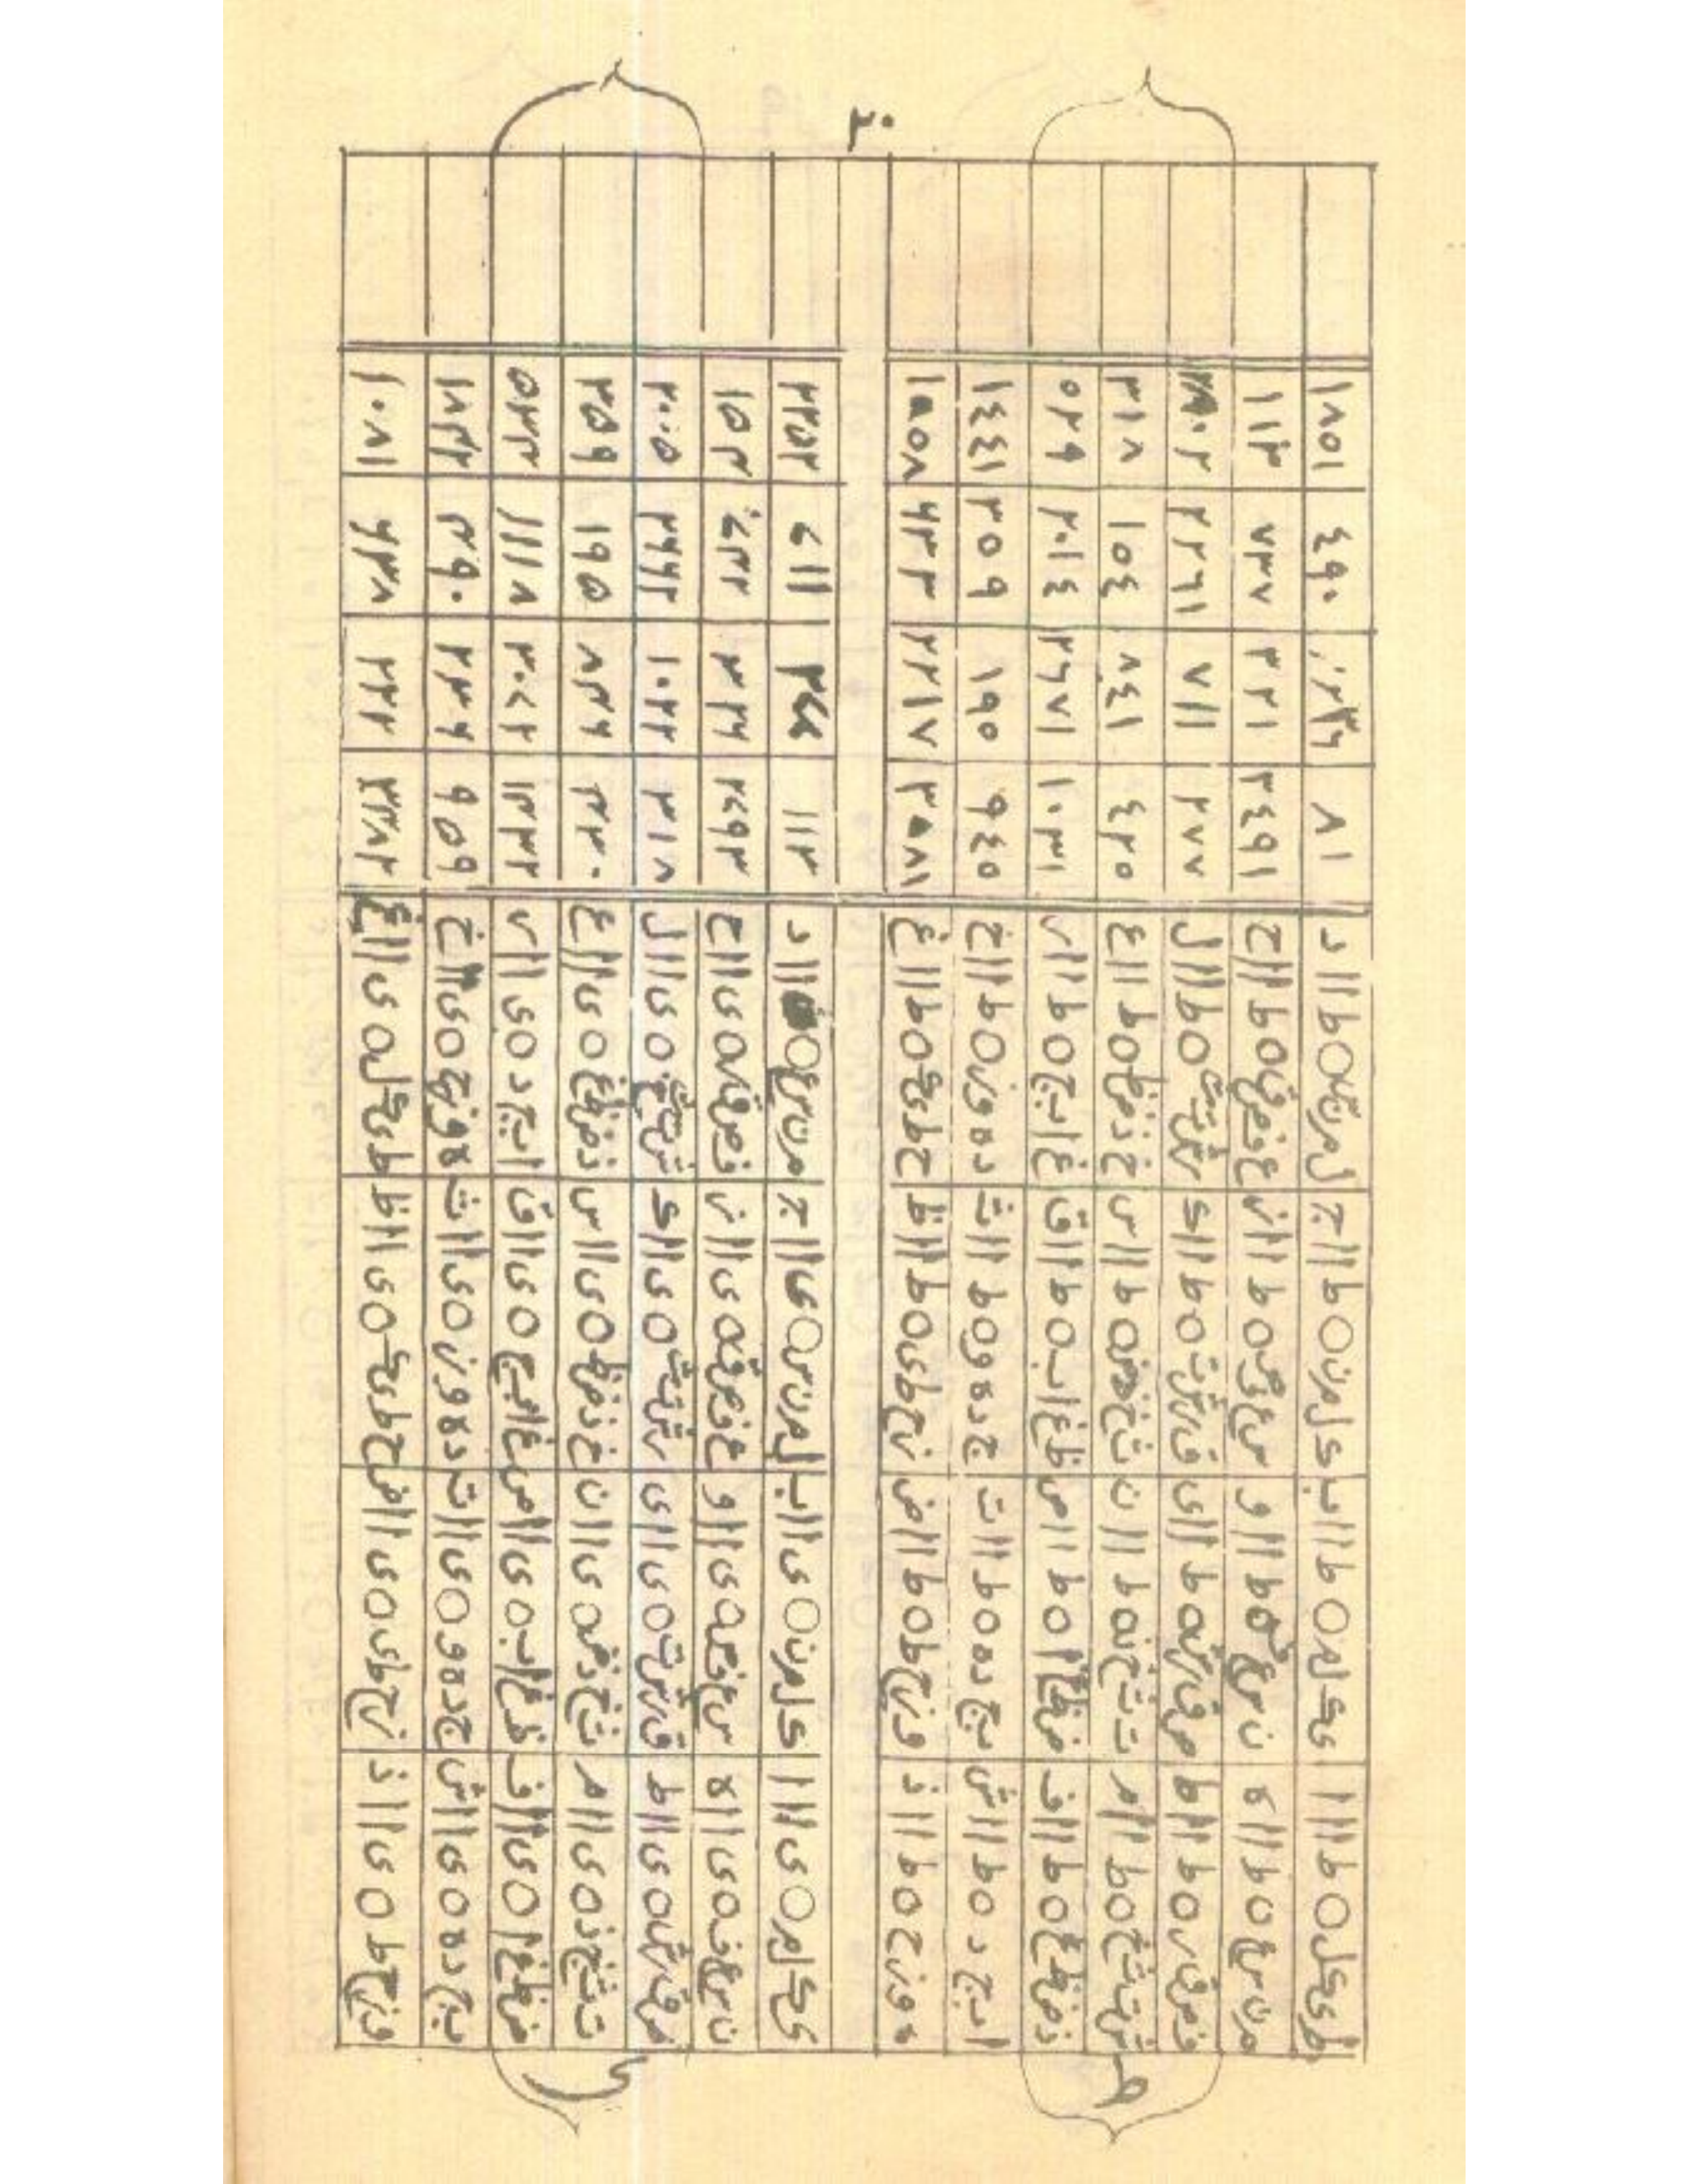 ط ي ك ل ٥ ط ااا | ي ك ل م ٥ ط اا ب | ك ل م ن ٥ ط اا ج | ل م ن س ٥ ط اا د | ٨١ | ٤٩٠ | ١٨٥١
م ن س ع ٥ ط اا ه | ن س ع ف ٥ ط اا و | س ع ف ص ٥ ط اا ز | ع ف ص ق ٥ ط اا ح | ٢٤٩١ | ٣٢١ | ٧٣٧ | ١١٣
ف ص ق ر ٥ ط اا ط | ص ق ر ش ٥ ط اا ي | ق ر ش ت ٥ ط اا ك | ر ش ت ث ٥ ط اا ل | ٢٧٧ | ٧١١ | ٢٢٦١
ش ت ث خ ٥ ط اا م | ت ث خ ذ ٥ ط اا ن | ث خ ذ ض ٥ ط اا س | خ ذ ض ظ ٥ ط اا ع | ٤٢٥ | ٨٤١ | ١٥٤ | ٣١٨
ذ ض ظ غ ٥ ط اا ف | ض ظ غ ا ٥ ط اا ص | ظ غ ا ب ٥ ط اا ق | غ ا ب ج ٥ ط اا ر | ١٠٣١ | ٢٦٧١ | ٢٠١٤ | ٥٢٩
ا ب ج د ٥ ط اا ش | ب ج د ه ٥ ط اا ت | ج د ه و ٥ ط اا ث | د ه و ز ٥ ط اا خ | ٩٤٥ | ١٩٥ | ٣٥٩ | ١٤٤١
ه و ز ح ٥ ط اا ذ | و ز ح ط ٥ ط اا ض | ز ح ط ي ٥ ط اا ظ | ح ط ي ك ٥ ط اا غ | ٣٥٨١ | ٢٢١٧ | ٦٣٣ | ١٥٥٨
ي ك ل م ٥ ي ااا | ك ل م ن ٥ ي اا ب | ل م ن س ٥ ي اا ج | م ن س ع ٥ اا د | ١١٢ | ٢٢٥٢
ن س ع ف ٥ ي اا ه | س ع ف ص ٥ ي اا و | ع ف ص ق ٥ ي اا ز | ف ص ق ر ٥ ي اا ح | ٢٤٩٢ | ٣٢٦ | ١٥٣
ص ق ر ش ٥ ي اا ط | ق ر ش ت ٥ ي اا ي | ر ش ت ث ٥ ي اا ك | ش ت ث خ ٥ ي اا ل | ٣١٨ | ١٠٢٢ | ٢٦٦٢ | ٢٠٠٥
ت ث خ ذ ٥ ي اا م | ث خ ذ ض ٥ ي اا ن | خ ذ ض ظ ٥ ي اا س | ذ ض ظ غ ٥ ي اا ع | ٣٢٠ | ٨٣٦ | ١٩٥ | ٣٥٩
ض ظ غ ا ٥ ي اا ف | ظ غ ا ب ٥ ي اا ص | غ ا ب ج ٥ ي اا ق | ا ب ج د ٥ ي اا ر | ١٣٣٢ | ٢٠٤٢ | ١١١٨ | ٥٣٣
ب ج د ه ٥ ي اا ش | ج د ه و ٥ ي اا ت | د ه و ز ٥ ي اا ث | ه و ز ح ٥ ي اا خ | ٩٥٩ | ٢٣٣٦ | ٣٩٠ | ١٨٣٢
و ز ح ط ٥ ي اا ذ | ز ح ط ي ٥ ي اا ض | ح ط ي ك ٥ ي اا ظ | ط ي ك ل ٥ ي اا غ | ٣٣٨٢ | ٢٣٢ | ٦٣٨ | ١٠٨١